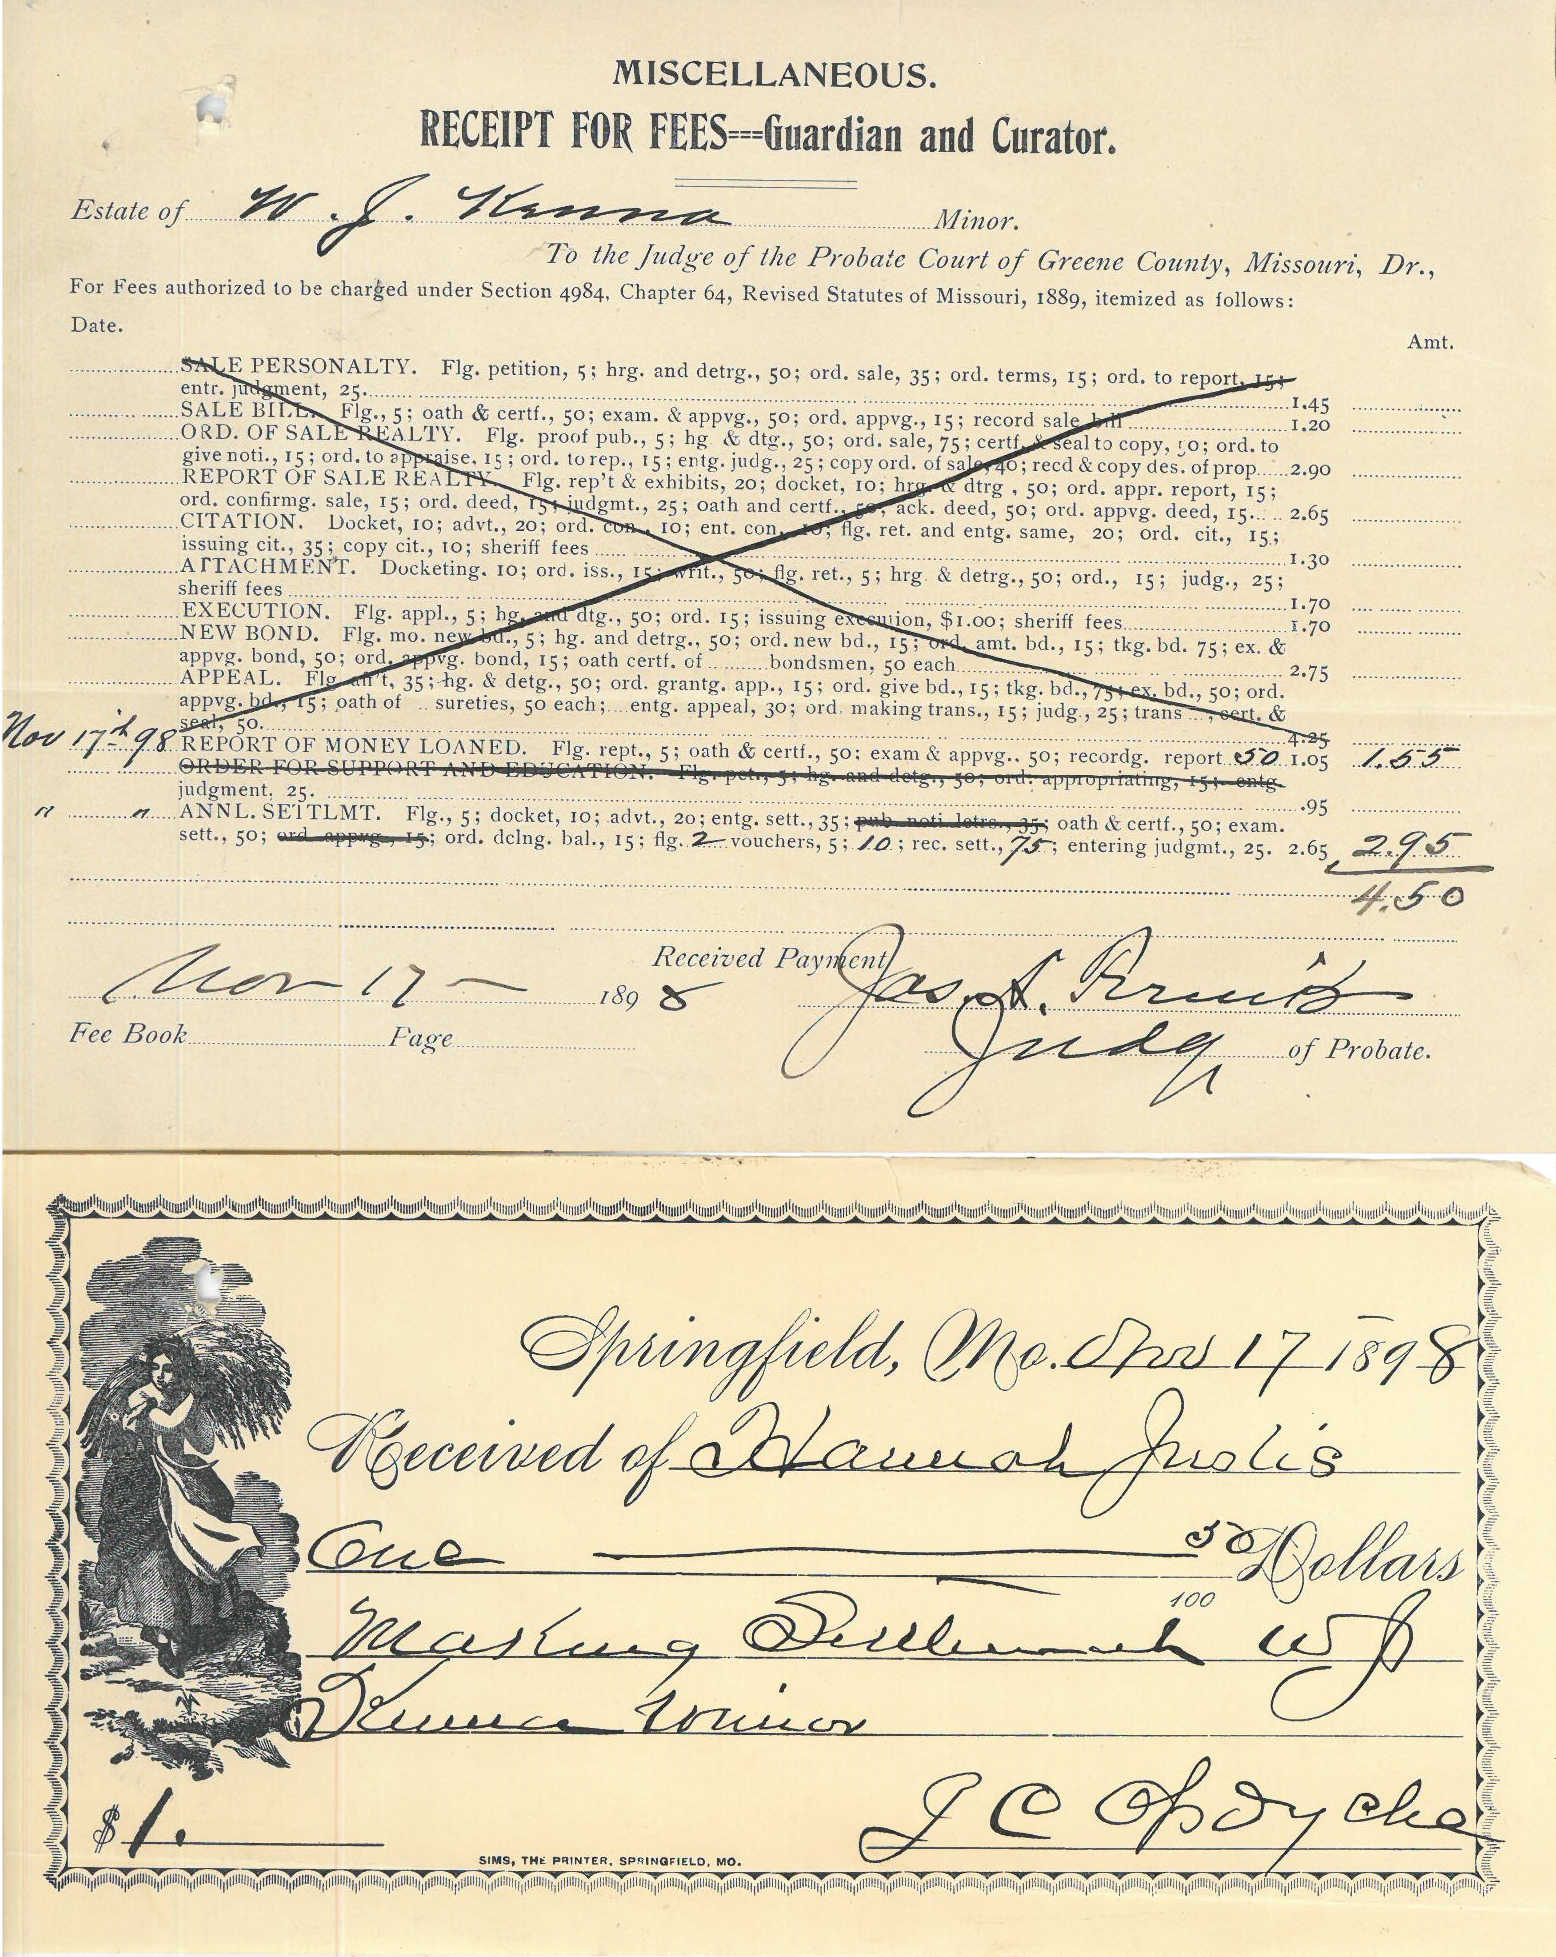 MISCELLANEOUS.
RECEIPT FOR FEES===Guardian and Curator.
Estate of W. J. Kenna Minor.
To the Judge of the Probate Court of Greene County, Missouri, Dr.,
For Fees authorized to be charged under Section 4984, Chapter 64, Revised Statutes of Missouri, 1889, itemized as follows:
Date.
Amt.
SALE PERSONALTY. Flg. petition, 5; hrg. and detrg., 50; ord. sale, 35; ord. terms, 15; ord. to report, 15;
entr. judgment, 25. 1.45
SALE BILL. Flg., 5; oath & certf., 50; exam. & appvg., 50; ord. appvg., 15; record sale bill 1.20
ORD. OF SALE REALTY. Flg. proof pub., 5; hg & dtg., 50; ord. sale, 75; certf. & seal to copy, 50; ord. to
give noti., 15; ord. to appraise, 15; ord. to rep., 15; entg. judg., 25; copy ord. of sale, 40; recd & copy des. of prop. 2.90
REPORT OF SALE REALTY. Flg. rep't & exhibits, 20; docket, 10; hrg. & dtrg., 50; ord. appr. report, 15;
ord. confirmg. sale, 15; ord. deed, 15; judgmt., 25; oath and certf., 50; ack. deed, 50; ord. appvg. deed, 15. 2.65
CITATION. Docket, 10; advt., 20; ord. con., 10; ent. con., 10; flg. ret. and entg. same, 20; ord. cit., 15;
issuing cit., 35; copy cit., 10; sheriff fees 1.30
ATTACHMENT. Docketing. 10; ord. iss., 15; writ., 50; flg. ret., 5; hrg. & detrg., 50; ord., 15; judg., 25;
sheriff fees 1.70
EXECUTION. Flg. appl., 5; hg. and dtg., 50; ord. 15; issuing execution, $1.00; sheriff fees 1.70
NEW BOND. Flg. mo. new bd., 5; hg. and detrg., 50; ord. new bd., 15; ord. amt. bd., 15; tkg. bd. 75; ex. &
appvg. bond, 50; ord. appvg. bond, 15; oath certf. of bondsmen, 50 each 2.75
APPEAL. Flg. aff't, 35; hg. & detg., 50; ord. grantg. app., 15; ord. give bd., 15; tkg. bd., 75; ex. bd., 50; ord.
appvg. bd., 15; oath of sureties, 50 each; entg. appeal, 30; ord. making trans., 15; judg., 25; trans ; cert. &
seal, 50. 4.25
Nov 17th 98 REPORT OF MONEY LOANED. Flg. rept., 5; oath & certf., 50; exam & appvg.. 50; recordg. report 50 1.05 1.55
ORDER FOR SUPPORT AND EDUCATION. Flg. pet., 5; hg. and detg., 50; ord. appropriating, 15; entg.
judgment, 25. .95
" " ANNL. SETTLMT. Flg., 5; docket, 10; advt., 20; entg. sett., 35; pub. noti. letrs., 35; oath & certf., 50; exam.
sett., 50; ord. appvg. 15; ord. dclng. bal., 15; flg. 2 vouchers, 5; 10; rec. sett., 75; entering judgmt., 25. 2.65 2.95
4.50
Received Payment
Nov 17 - 1898 Jas. A.
Judge of Probate.
Fee Book Page
Springfield, Mo. Nov 17 1898
Received of Hannah Justis
One 50/100 Dollars
Making Settlement W J
Kenna Minor
$ 1. J C Opdycke
SIMS, THE PRINTER, SPRINGFIELD, MO.